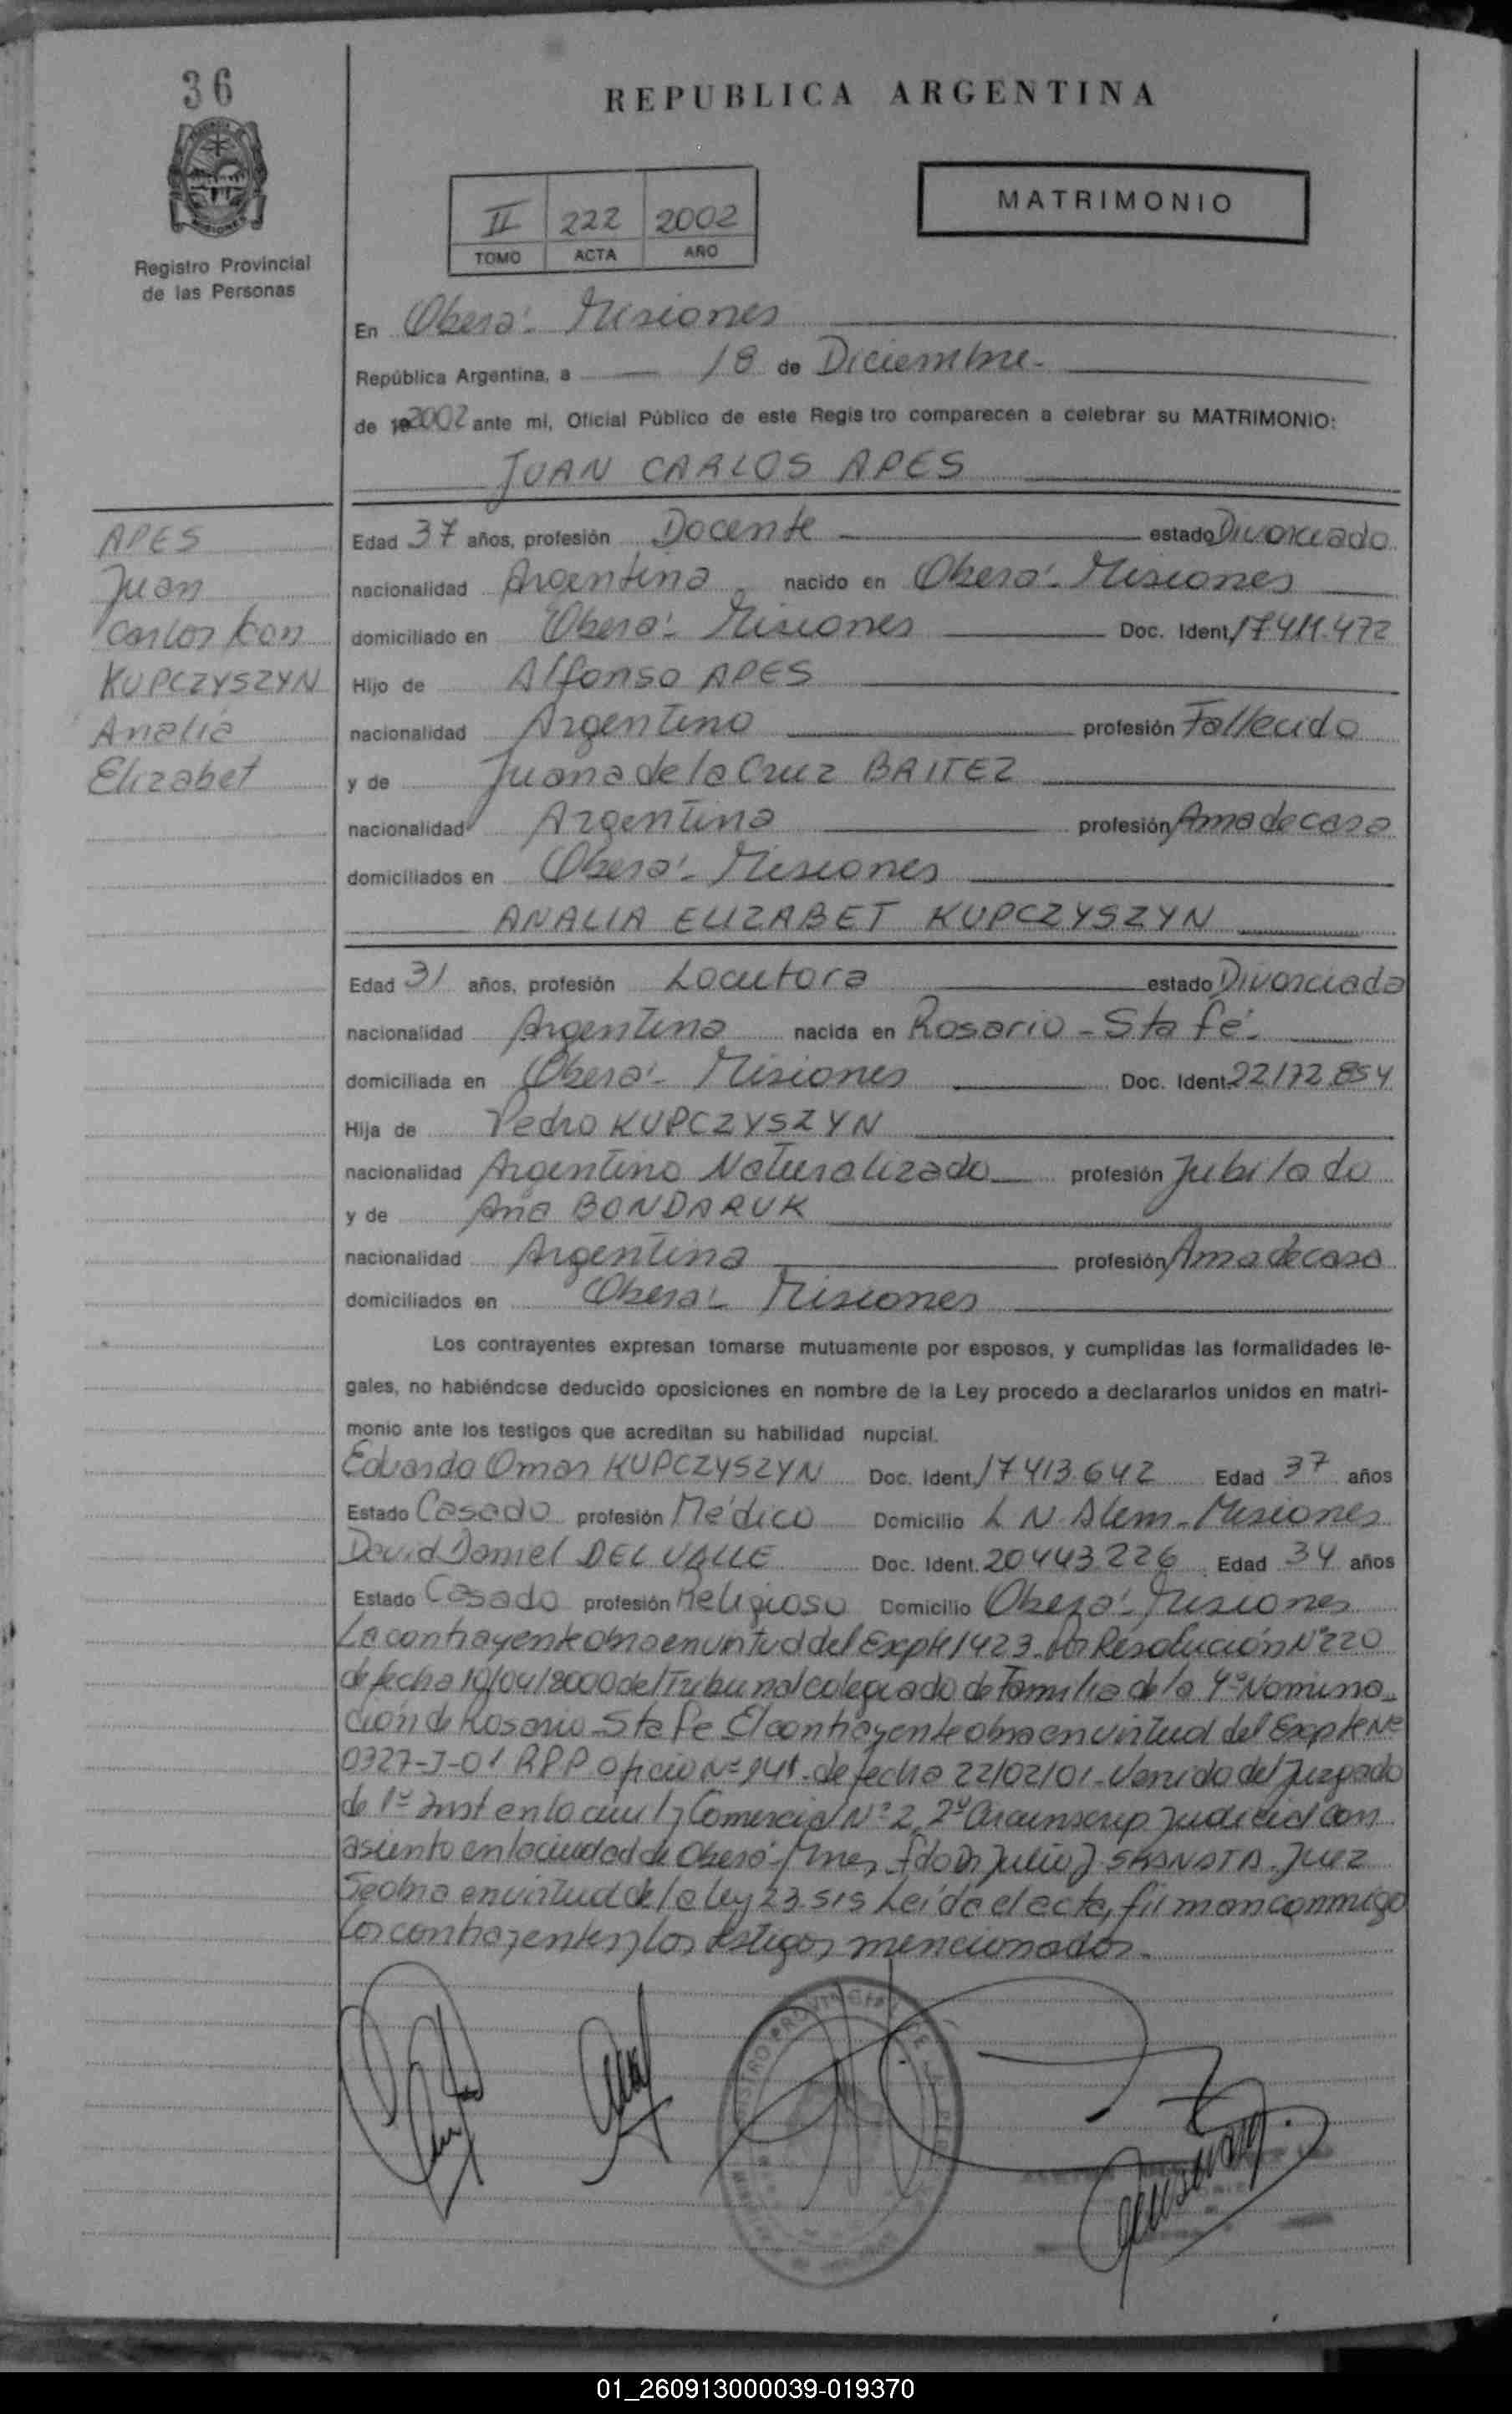 36
REPUBLICA ARGENTINA
MISIONES
Registro Provincial
de las Personas
II 222 2002
TOMO ACTA AÑO
MATRIMONIO
En Oberá - Misiones
República Argentina, a 18 de Diciembre-
de 2002 ante mi, Oficial Público de este Regis tro comparecen a celebrar su MATRIMONIO:
JUAN CARLOS APES
APES
Juan
Carlos con
KUPCZYSZYN
Analia
Elizabet
Edad 37 años, profesión Docente estado Divorciado
nacionalidad Argentina nacido en Oberá - Misiones
domiciliado en Oberá - Misiones Doc. Ident. 17411.472
Hijo de Alfonso APES
nacionalidad Argentino profesión Fallecido
y de Juana de la Cruz BAITEZ
nacionalidad Argentina profesión Ama de casa
domiciliados en Oberá - Misiones
ANALIA ELIZABET KUPCZYSZYN
Edad 31 años, profesión Locutora estado Divorciada
nacionalidad Argentina nacida en Rosario - Sta fé-
domiciliada en Oberá - Misiones Doc. Ident. 22172.854
Hija de Pedro KUPCZYSZYN
nacionalidad Argentino Naturalizado profesión Jubilado
y de Ana BONDARUK
nacionalidad Argentina profesión Ama de casa
domiciliados en Oberá - Misiones
Los contrayentes expresan tomarse mutuamente por esposos, y cumplidas las formalidades le-
gales, no habiéndose deducido oposiciones en nombre de la Ley procedo a declararlos unidos en matri-
monio ante los testigos que acreditan su habilidad nupcial.
Eduardo Omar KUPCZYSZYN Doc. Ident. 17413.642 Edad 37 años
Estado Casado profesión Médico Domicilio L N. Alem - Misiones
David Daniel DEL VALLE Doc. Ident. 20443.226 Edad 34 años
Estado Casado profesión Religioso Domicilio Oberá - Misiones
La contrayente obra en virtud del Expte 1423. Por Resolución Nº 220
de fecha 10/04/2000 del Tribunal colegiado de Familia de la 4º Nomina-
ción de Rosario - Sta Fe El contrayente obra en virtud del Expte Nº
0327-J-01 RPP oficio Nº 141. de fecha 22/02/01 - Venido del Juzgado
de 1º Inst en lo civil y Comercial Nº 2, 2º Circunscrip Judicial con
asiento en la ciudad de Oberá - Mnes fdo Dr Julio J SKANATA. Juez
Se obra en virtud de la ley 23.515 Leída el acta, firman conmigo
los contrayentes y los testigos mencionados.
01_260913000039-019370